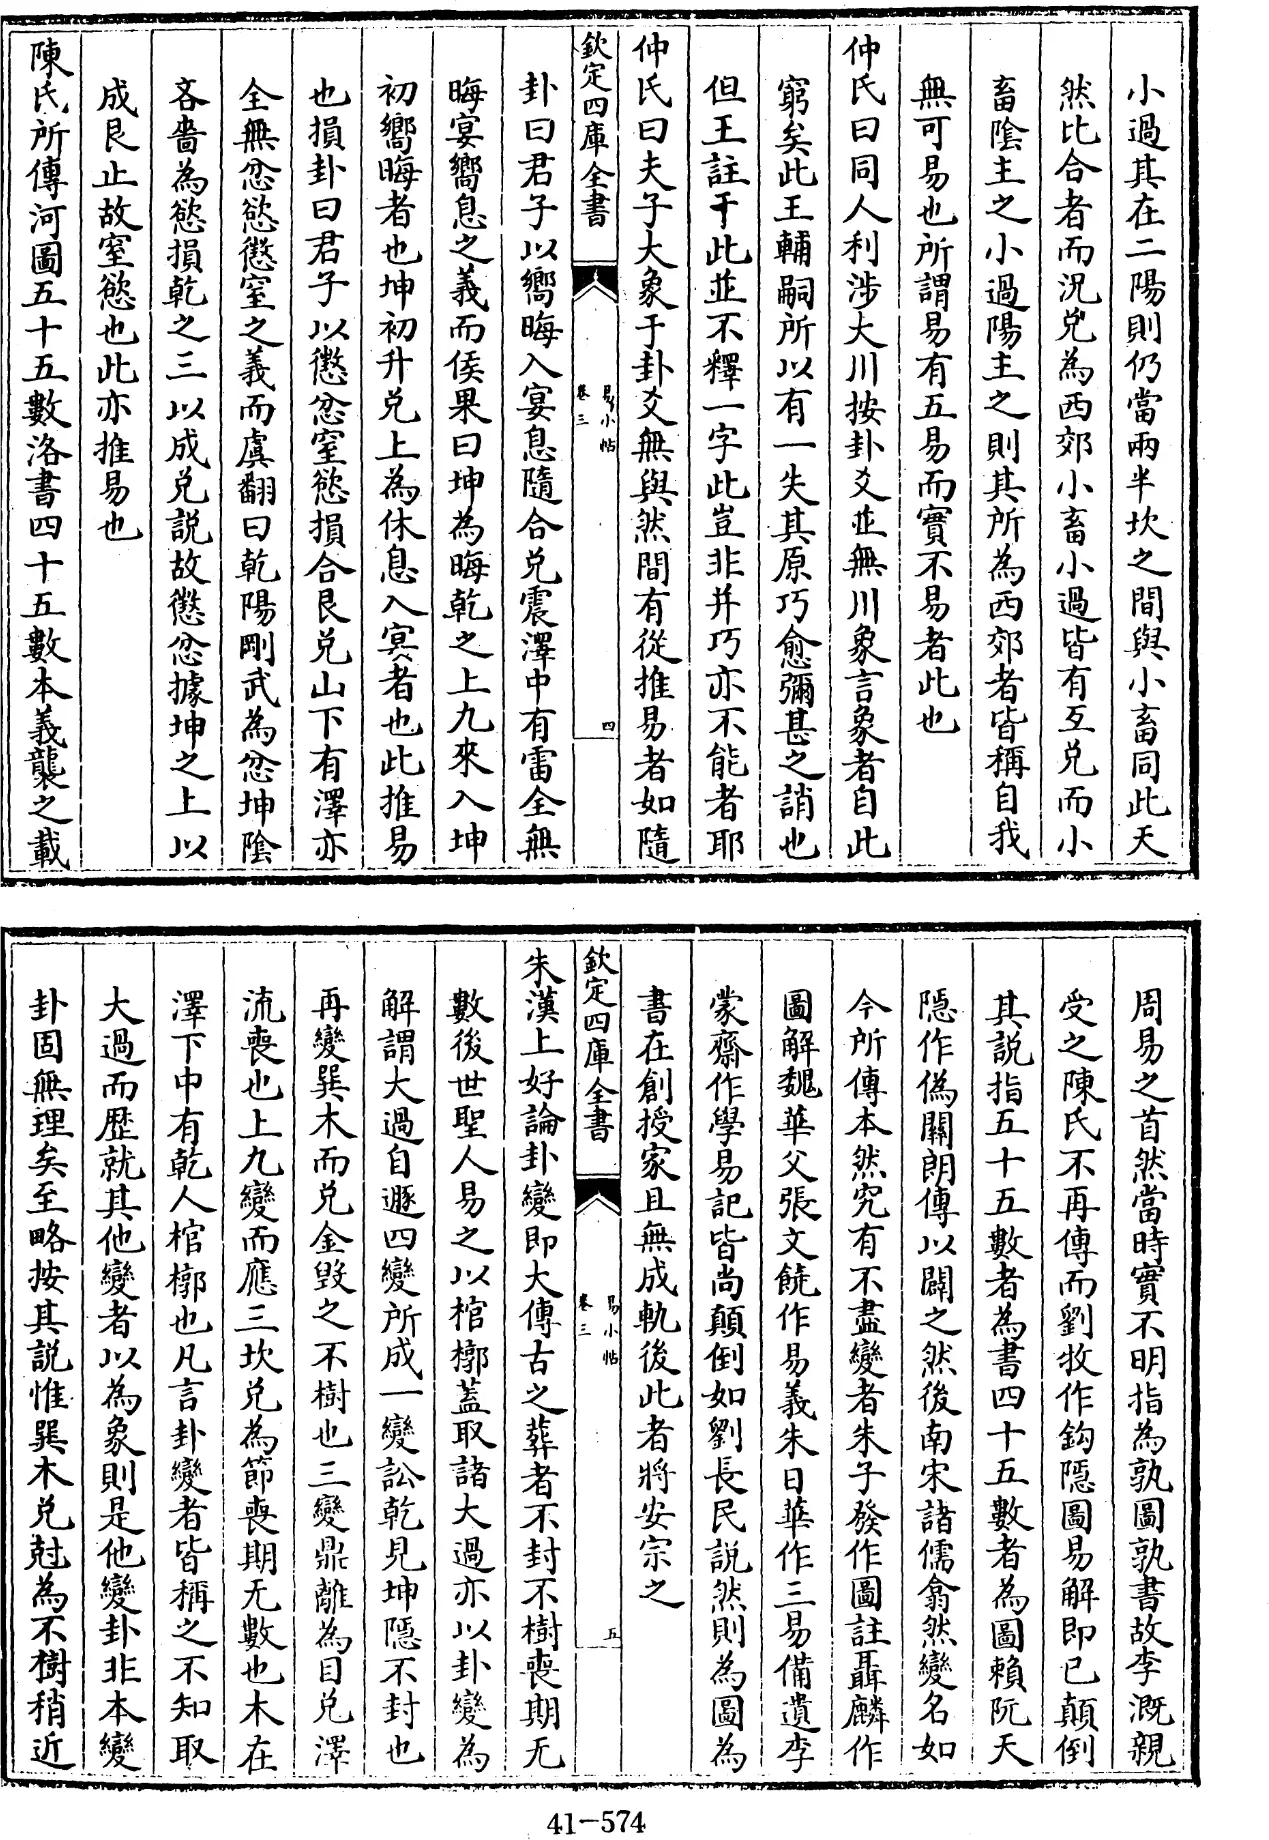 小過其在二陽則仍當兩半坎之間與小畜同此天
然比合者而況兌為西郊小畜小過皆有互兌而小
畜陰主之小過陽主之則其所為西郊者皆稱自我
無可易也所謂易有五易而實不易者此也
仲氏曰同人利涉大川按卦爻並無川象言象者自此
窮矣此王輔嗣所以有一失其原巧愈彌甚之誚也
但王註于此並不釋一字此豈非并巧亦不能者耶
仲氏曰夫子大象于卦爻無與然間有從推易者如隨
欽定四庫全書
易小帖
卷三
四
卦曰君子以嚮晦入宴息隨合兌震澤中有雷全無
晦宴嚮息之義而侯果曰坤為晦乾之上九來入坤
初嚮晦者也坤初升兌上為休息入宴者也此推易
也損卦曰君子以懲忿窒慾損合艮兌山下有澤亦
全無忿慾懲窒之義而虞翻曰乾陽剛武為忿坤陰
吝嗇為慾損乾之三以成兌説故懲忿據坤之上以
成艮止故窒慾也此亦推易也
陳氏所傳河圖五十五數洛書四十五數本義襲之載
周易之首然當時實不明指為孰圖孰書故李溉親
受之陳氏不再傳而劉牧作鈎隱圖易解即已顛倒
其説指五十五數者為書四十五數者為圖賴阮天
隱作偽關朗傳以闢之然後南宋諸儒翕然變名如
今所傳本然究有不盡變者朱子發作圖註聶麟作
圖解魏華父張文饒作易義朱日華作三易備遺李
蒙齋作學易記皆尚顛倒如劉長民説然則為圖為
書在創授家且無成軌後此者將安宗之
欽定四庫全書
易小帖
卷三
五
朱漢上好論卦變即大傳古之葬者不封不樹喪期无
數後世聖人易之以棺槨蓋取諸大過亦以卦變為
解謂大過自遯四變所成一變訟乾見坤隱不封也
再變巽木而兌金毀之不樹也三變鼎離為目兌澤
流喪也上九變而應三坎兌為節喪期无數也木在
澤下中有乾人棺槨也凡言卦變者皆稱之不知取
大過而歷就其他變者以為象則是他變卦非本變
卦固無理矣至略按其説惟巽木兌尅為不樹稍近
41-574